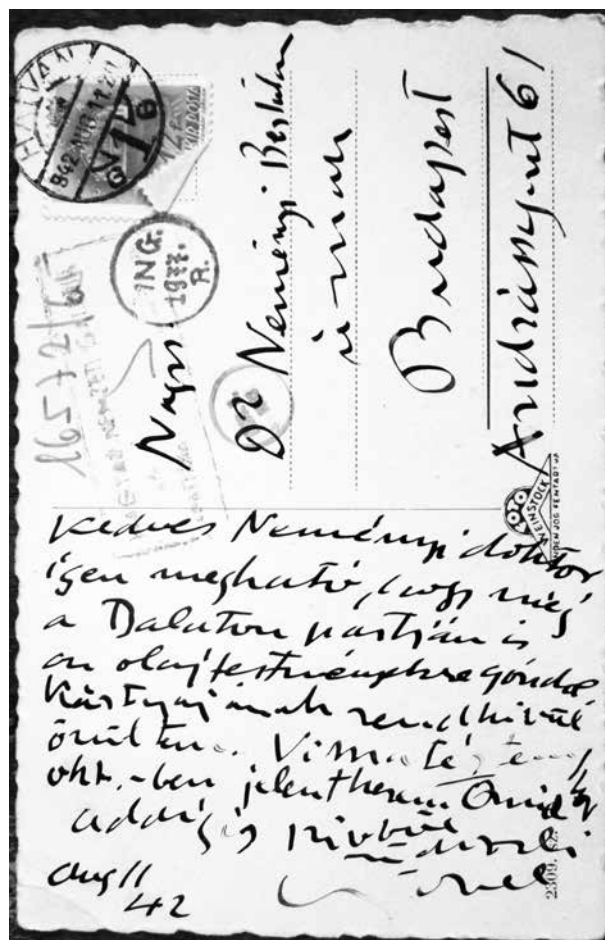 HATVAN
942 AUG 12
ING.
1977.
R.
1657
Nagys.
Dr Neményi Bertalan
úrnak
Budapest
Andrássy út 61
WEINSTOCK
MINDEN JOG FENTARTVA
Kedves Neményi doktor
igen megható, hogy még
a Balaton partján is
an olajfestményekre gondol
Kártyájának rendkívül
örültem.
okt.-ben jelenthetem Önnek
addig is szívből
üdvözli
aug 11
42
2309.